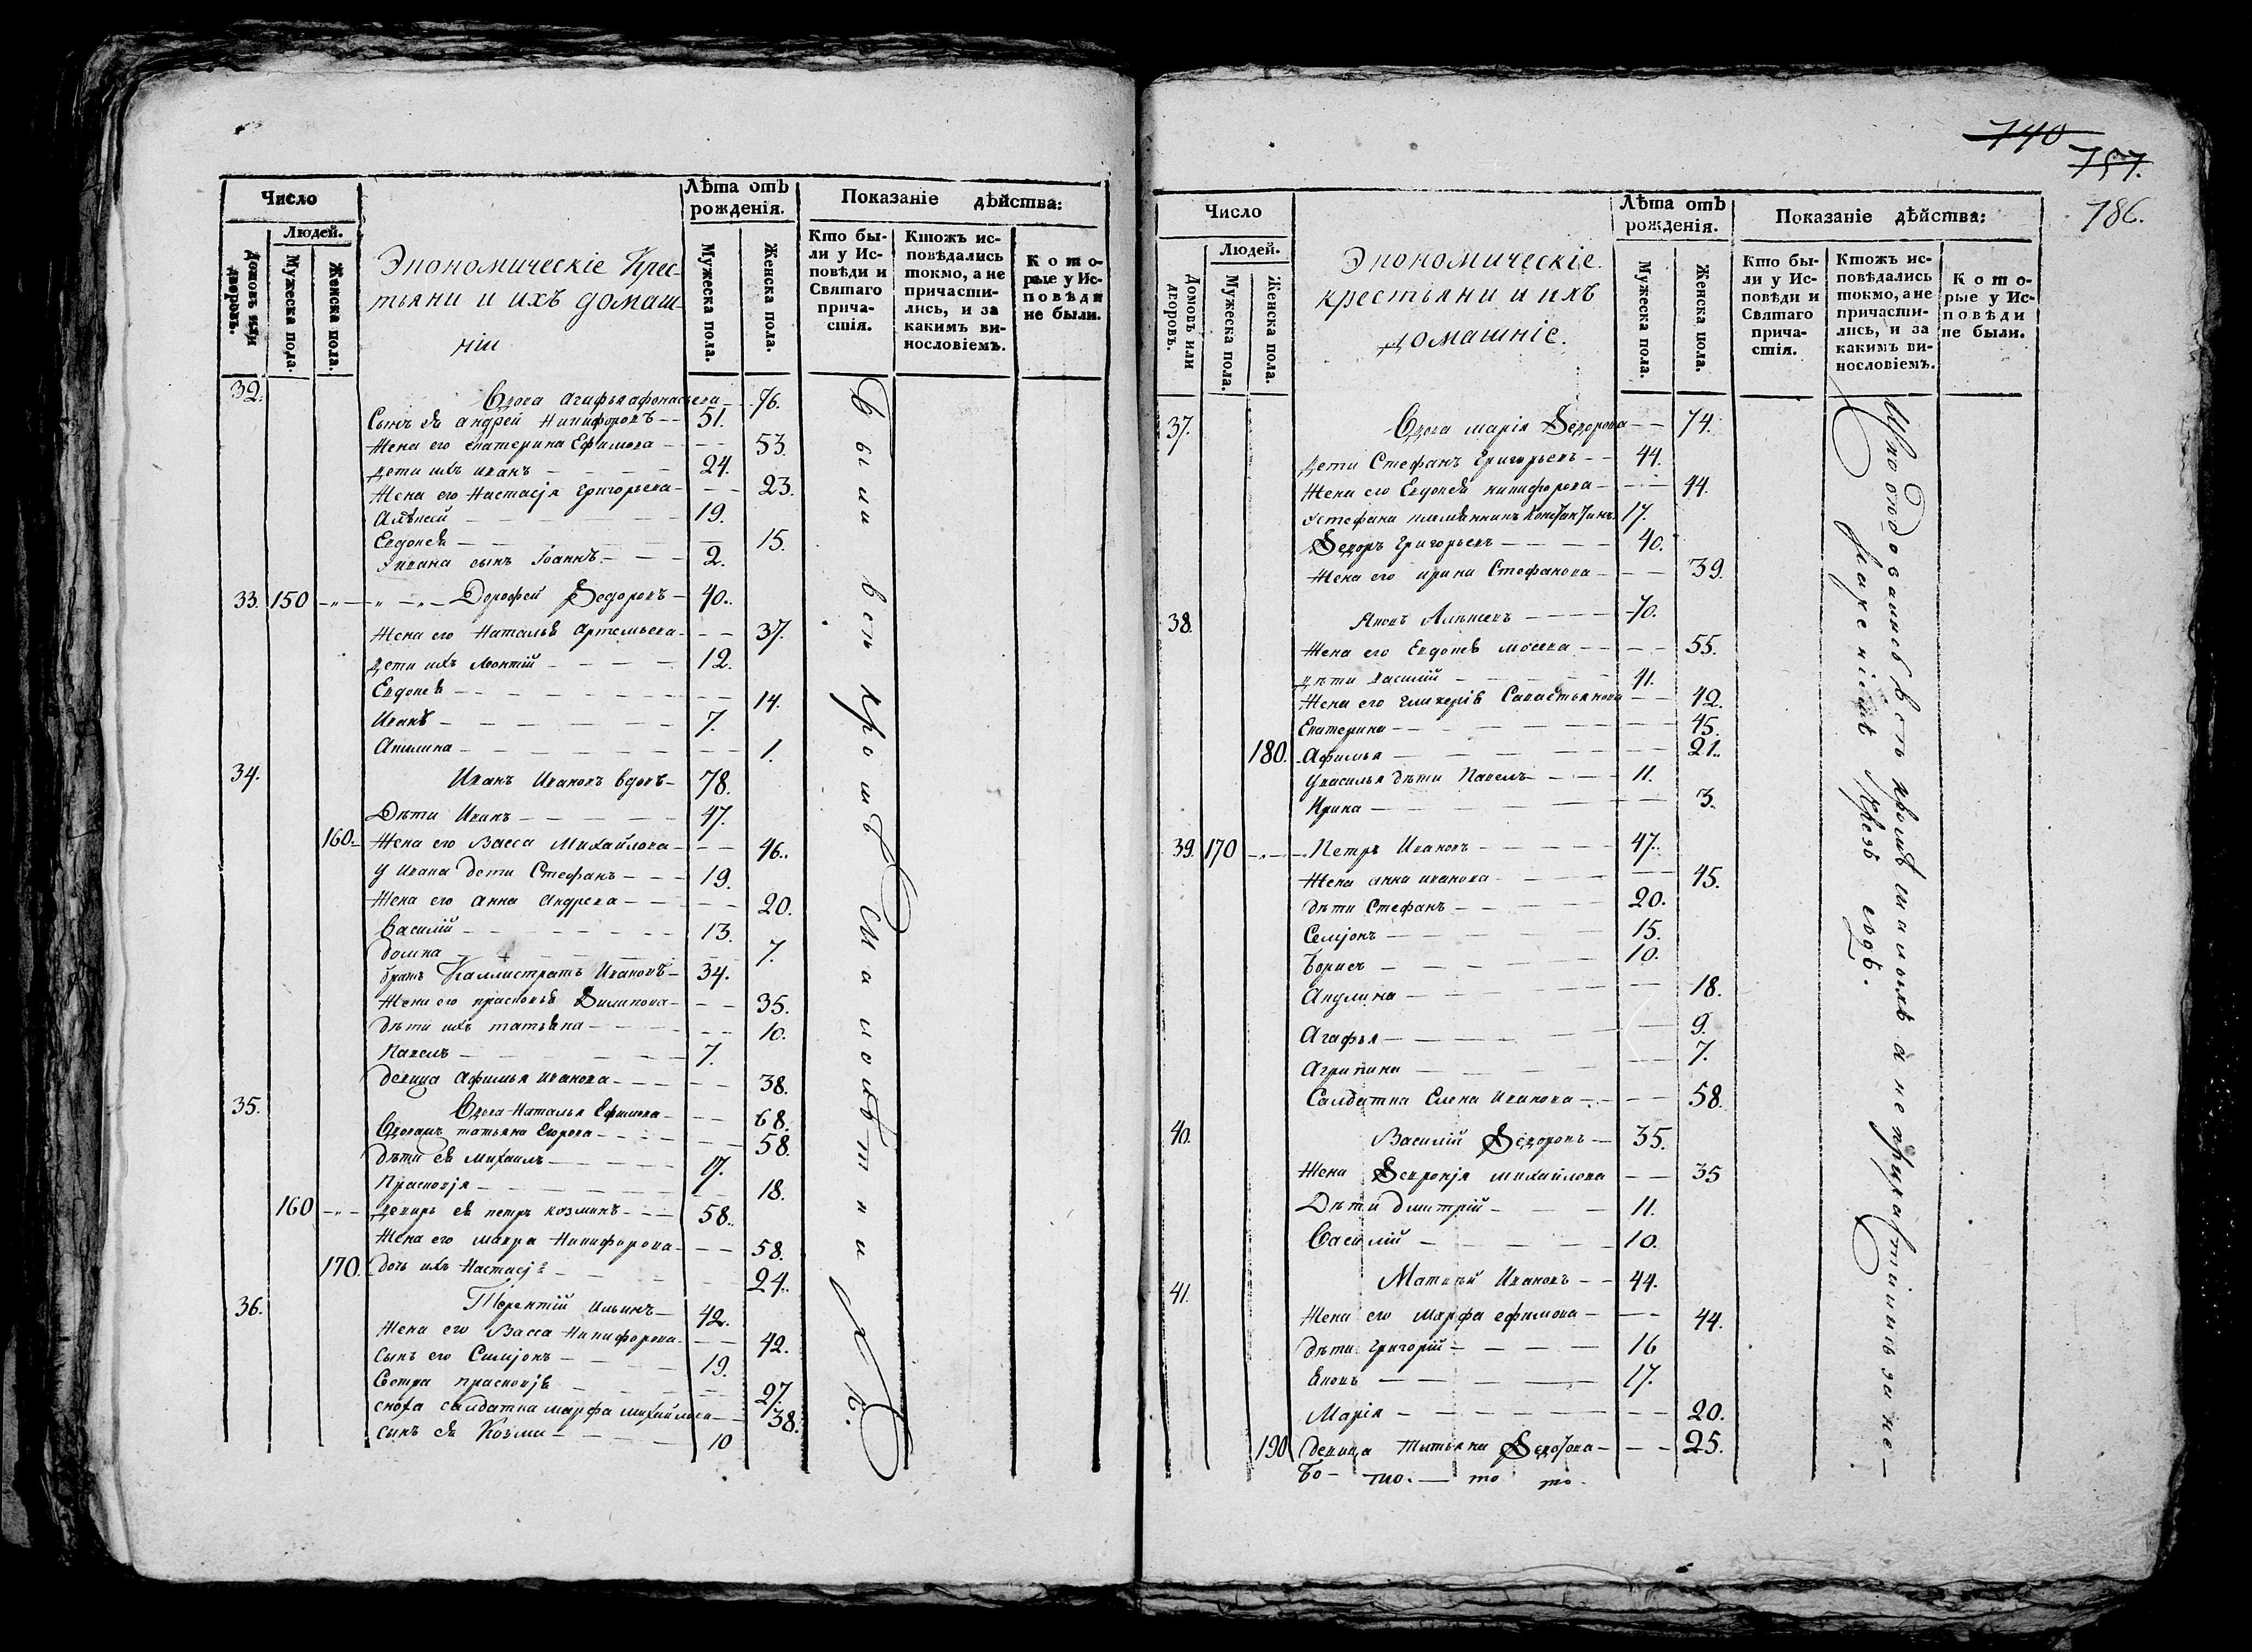 Число
Людей.
Домовъ или дворовъ.
Мужеска пола.
Женска пола.
Экономическіе Крес-
тьяни и ихъ домаш-
ніи
Лѣта отъ
рожденія.
Мужеска пола.
Женска пола.
Показаніе дѣйства:
Кто бы-
ли у Ис-
повѣди и
Святаго
прича-
стія.
Ктожъ ис-
повѣдались
токмо, а не
причасти-
лись, и за
какимъ ви-
нословіемъ.
Кото-
рые у Ис-
повѣди
не были.
32. Вдова агифья афонасьева — 76.
Сынъ ея андрей Никифоровъ — 51.
Жена его екатерина Ефимова — 53.
дети ихъ иванъ — 24.
Жена его Настасја григорьева — 23.
Алѣксей — 19.
Евдокея — 15.
У ивана сынъ Іоаннъ — 2.
33. 150 Дорофей Ѳедоровъ — 40.
Жена его Наталья артемьева — 37.
дети ихъ леонтій — 12.
Евдокея — 14.
Иванъ — 7.
Акилина — 1.
34. Иванъ Ивановъ вдовъ — 78.
Дѣти Иванъ — 47.
160. Жена его Васса Михайлова — 46.
У Ивана дети Стефанъ — 19.
Жена его анна андреева — 20.
Василій — 13.
домна — 7.
братъ Каллистратъ Ивановъ — 34.
Жена его прасковья Филипова — 35.
дѣти ихъ татьяна — 10.
Павелъ — 7.
девица афимья иванова — 38.
35. Вдова Наталья Ефимова — 68.
татьяна Егорова — 58.
дѣти ея михаилъ — 17.
Прасковја — 18.
160 деверь ея петръ козминъ — 58.
Жена его мавра Никифорова — 58.
170. дочь ихъ Настасја — 24.
36. Терентій ильинъ — 42.
Жена его Васса Никифорова — 42.
Сынъ его Симјонъ — 19.
Сестра прасковја — 27.
сноха салдатка марфа михайлова — 38.
сынъ ея Козма — 10
Были всѣ кромѣ малолѣтнихъ.
740
757.
786.
Число
Людей.
Домовъ или дворовъ.
Мужеска пола.
Женска пола.
Экономическіе
крестьяни и ихъ
домашніе.
Лѣта отъ
рожденія.
Мужеска пола.
Женска пола.
Показаніе дѣйства:
Кто бы-
ли у Ис-
повѣди и
Святаго
прича-
стія.
Ктожъ ис-
повѣдались
токмо, а не
причасти-
лись, и за
какимъ ви-
нословіемъ.
Кото-
рые у Ис-
повѣди
не были.
37. Вдова марія Ѳедорова — 74.
дети Стефанъ григорьевъ — 44.
Жена его Евдокея никифорова — 44.
У стефана племянникъ Константинъ 17.
Ѳедоръ григорьевъ — 40.
Жена его ирина Стефанова — 39.
38. Яковъ Алѣксеевъ — 70.
Жена его Евдокея мосеева — 55.
дѣти василий — 41.
Жена его гликерія Савастьянова — 42.
Екатерина — 45.
180. Афимья — 21.
У василья дѣти Павелъ — 11.
Ирина — 3.
39. 170 Петръ Ивановъ — 47.
Жена анна иванова — 45.
дѣти Стефанъ — 20.
Семјонъ — 15.
борисъ — 10.
Акулина — 18.
Агафья — 9.
Агрипина — 7.
Салдатка Елена Иванова — 58.
40. Василій Ѳедоровъ — 35.
Жена Ѳевронја михайлова — 35
Дѣти дмитрій — 11.
Василій — 10.
41. Матвей Ивановъ — 44.
Жена его марфа ефимова — 44.
дѣти григорій — 16
Яковъ — 17.
Марія — 20.
190 девица татьяна Ѳедотова — 25.
Бо- то. — то то.